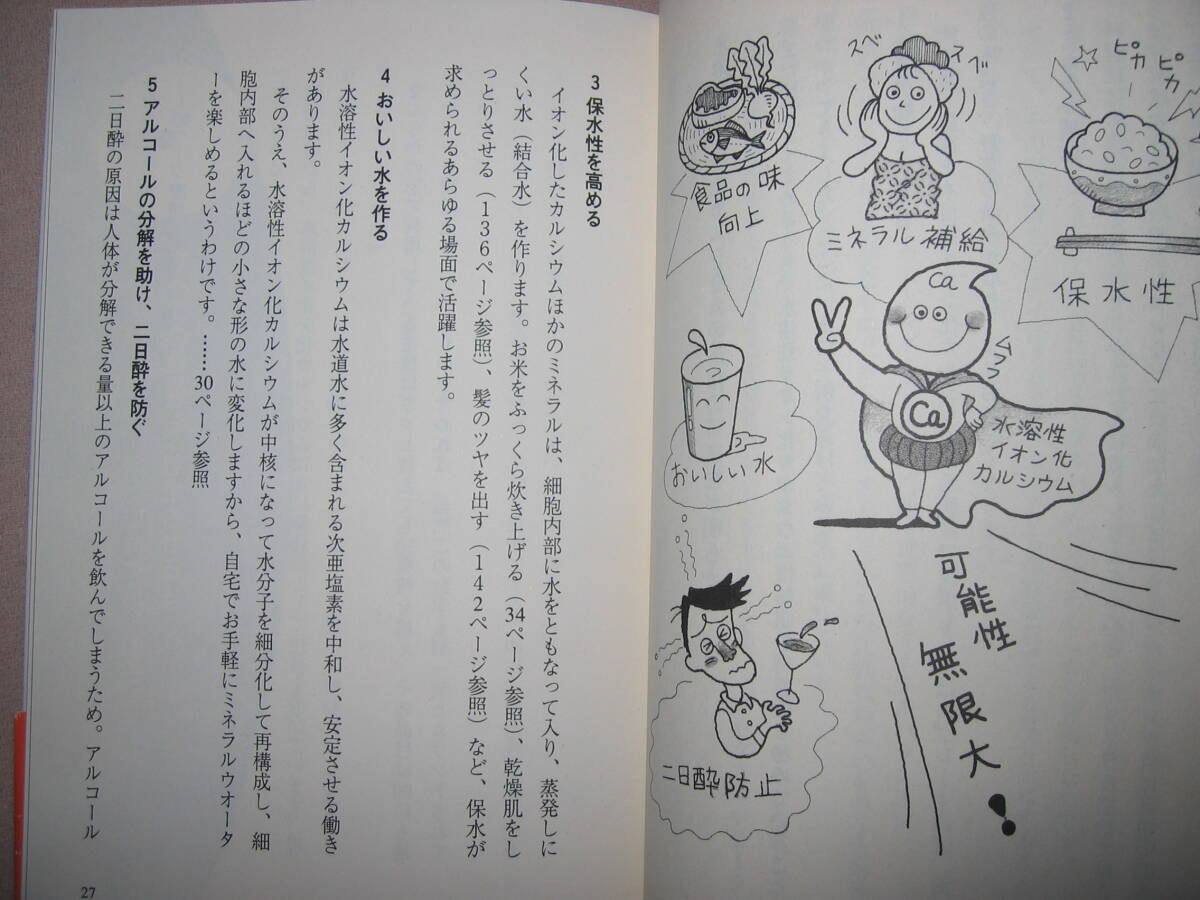 ピカ
ピカ
保水性
スベ
スベ
ミネラル補給
食品の味
向上
Ca
ムフフ
Ca
水溶性
イオン化
カルシウム
おいしい水
二日酔防止
可能性
無限大!
3 保水性を高める
イオン化したカルシウムほかのミネラルは、細胞内部に水をともなって入り、蒸発しに
くい水（結合水）を作ります。お米をふっくら炊き上げる（34ページ参照）、乾燥肌をし
っとりさせる（136ページ参照）、髪のツヤを出す（142ページ参照）など、保水が
求められるあらゆる場面で活躍します。
4 おいしい水を作る
水溶性イオン化カルシウムは水道水に多く含まれる次亜塩素を中和し、安定させる働き
があります。
そのうえ、水溶性イオン化カルシウムが中核になって水分子を細分化して再構成し、細
胞内部へ入れるほどの小さな形の水に変化しますから、自宅でお手軽にミネラルウオータ
ーを楽しめるというわけです。……30ページ参照
5 アルコールの分解を助け、二日酔を防ぐ
二日酔の原因は人体が分解できる量以上のアルコールを飲んでしまうため。アルコール
27